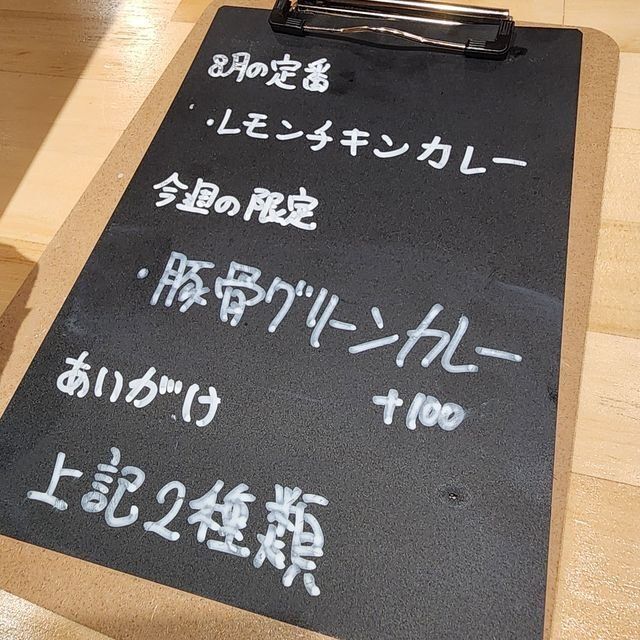 8月の定番
・レモンチキンカレー
今週の限定
・豚骨グリーンカレー
あいがけ +100
上記2種類